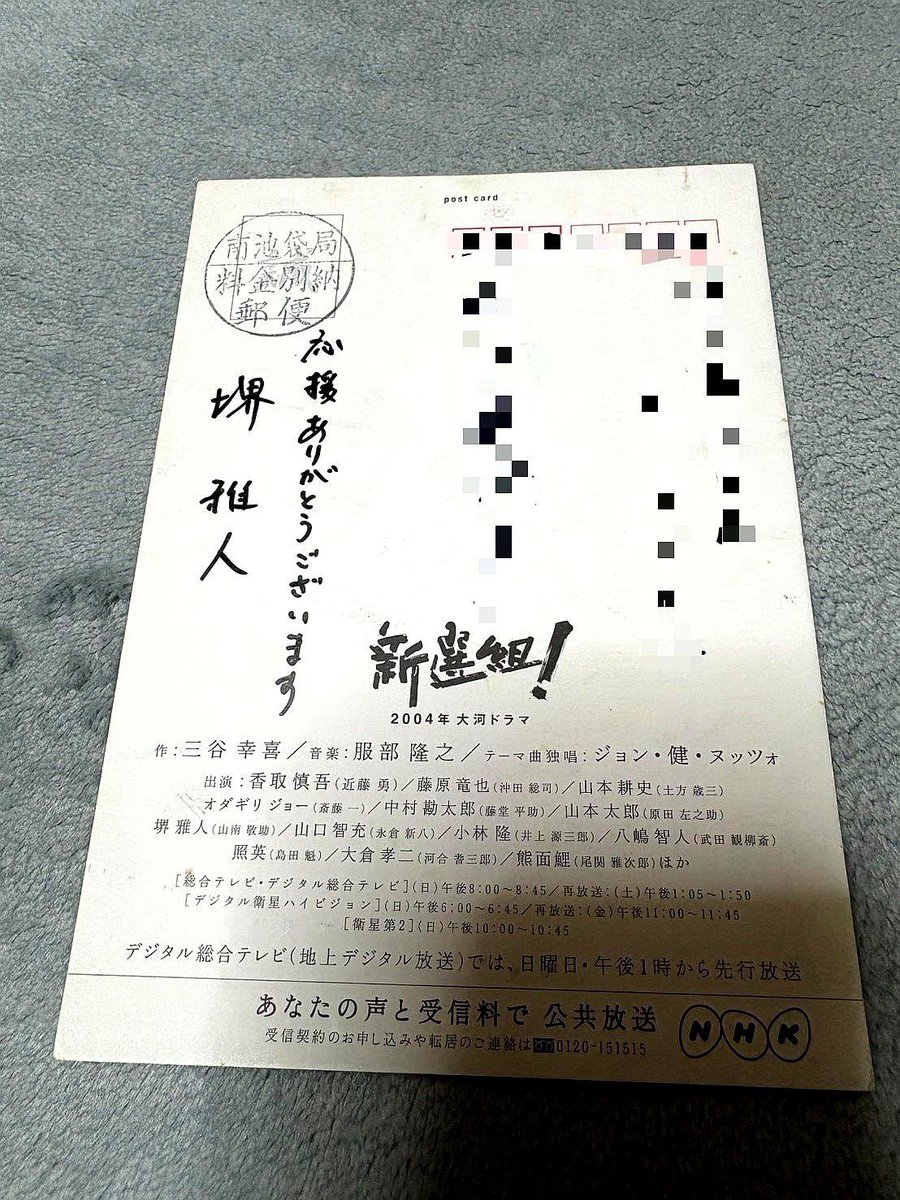 post card
南池袋局
料金別納
郵便
応援ありがとうございます
堺 雅人
新選組!
2004年 大河ドラマ
作:三谷 幸喜/音楽:服部 隆之/テーマ曲独唱:ジョン・健・ヌッツォ
出演:香取 慎吾(近藤 勇)/藤原 竜也(沖田 総司)/山本 耕史(土方 歳三)
オダギリ ジョー(斎藤 一)/中村 勘太郎(藤堂 平助)/山本 太郎(原田 左之助)
堺 雅人(山南 敬助)/山口 智充(永倉 新八)/小林 隆(井上 源三郎)/八嶋 智人(武田 観柳斎)
照英(島田 魁)/大倉 孝二(河合 耆三郎)/熊面鯉(尾関 雅次郎)ほか
[総合テレビ・デジタル総合テレビ](日)午後8:00~8:45/再放送:(土)午後1:05~1:50
[デジタル衛星ハイビジョン](日)午後6:00~6:45/再放送:(金)午後11:00~11:45
[衛星第2](日)午後10:00~10:45
デジタル総合テレビ(地上デジタル放送)では、日曜日・午後1時から先行放送
あなたの声と受信料で 公共放送
受信契約のお申し込みや転居のご連絡は 0120-151515
NHK